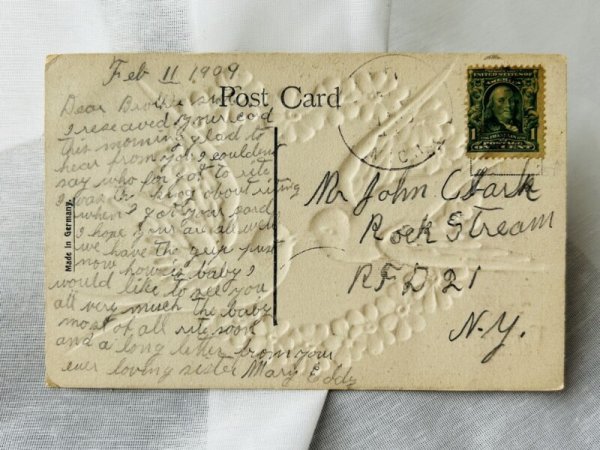 Feb 11 1909
Post Card
Dear Brother and
I reseaved your card
this morning glad to
hear from you I couldent
say who for got to rite
I was thinking about riting
when I got your card
I hope you are all well
we have the grip just
now how is baby I
would like to see you
all very much the baby
most of all rite soon
and a long letter from your
ever loving sister Mary Eddy
Made in Germany.
UNITED STATES OF AMERICA
1 1
POSTAGE
ONE CENT
Mr John Clark
Rock Stream
RFD 21
N.Y.